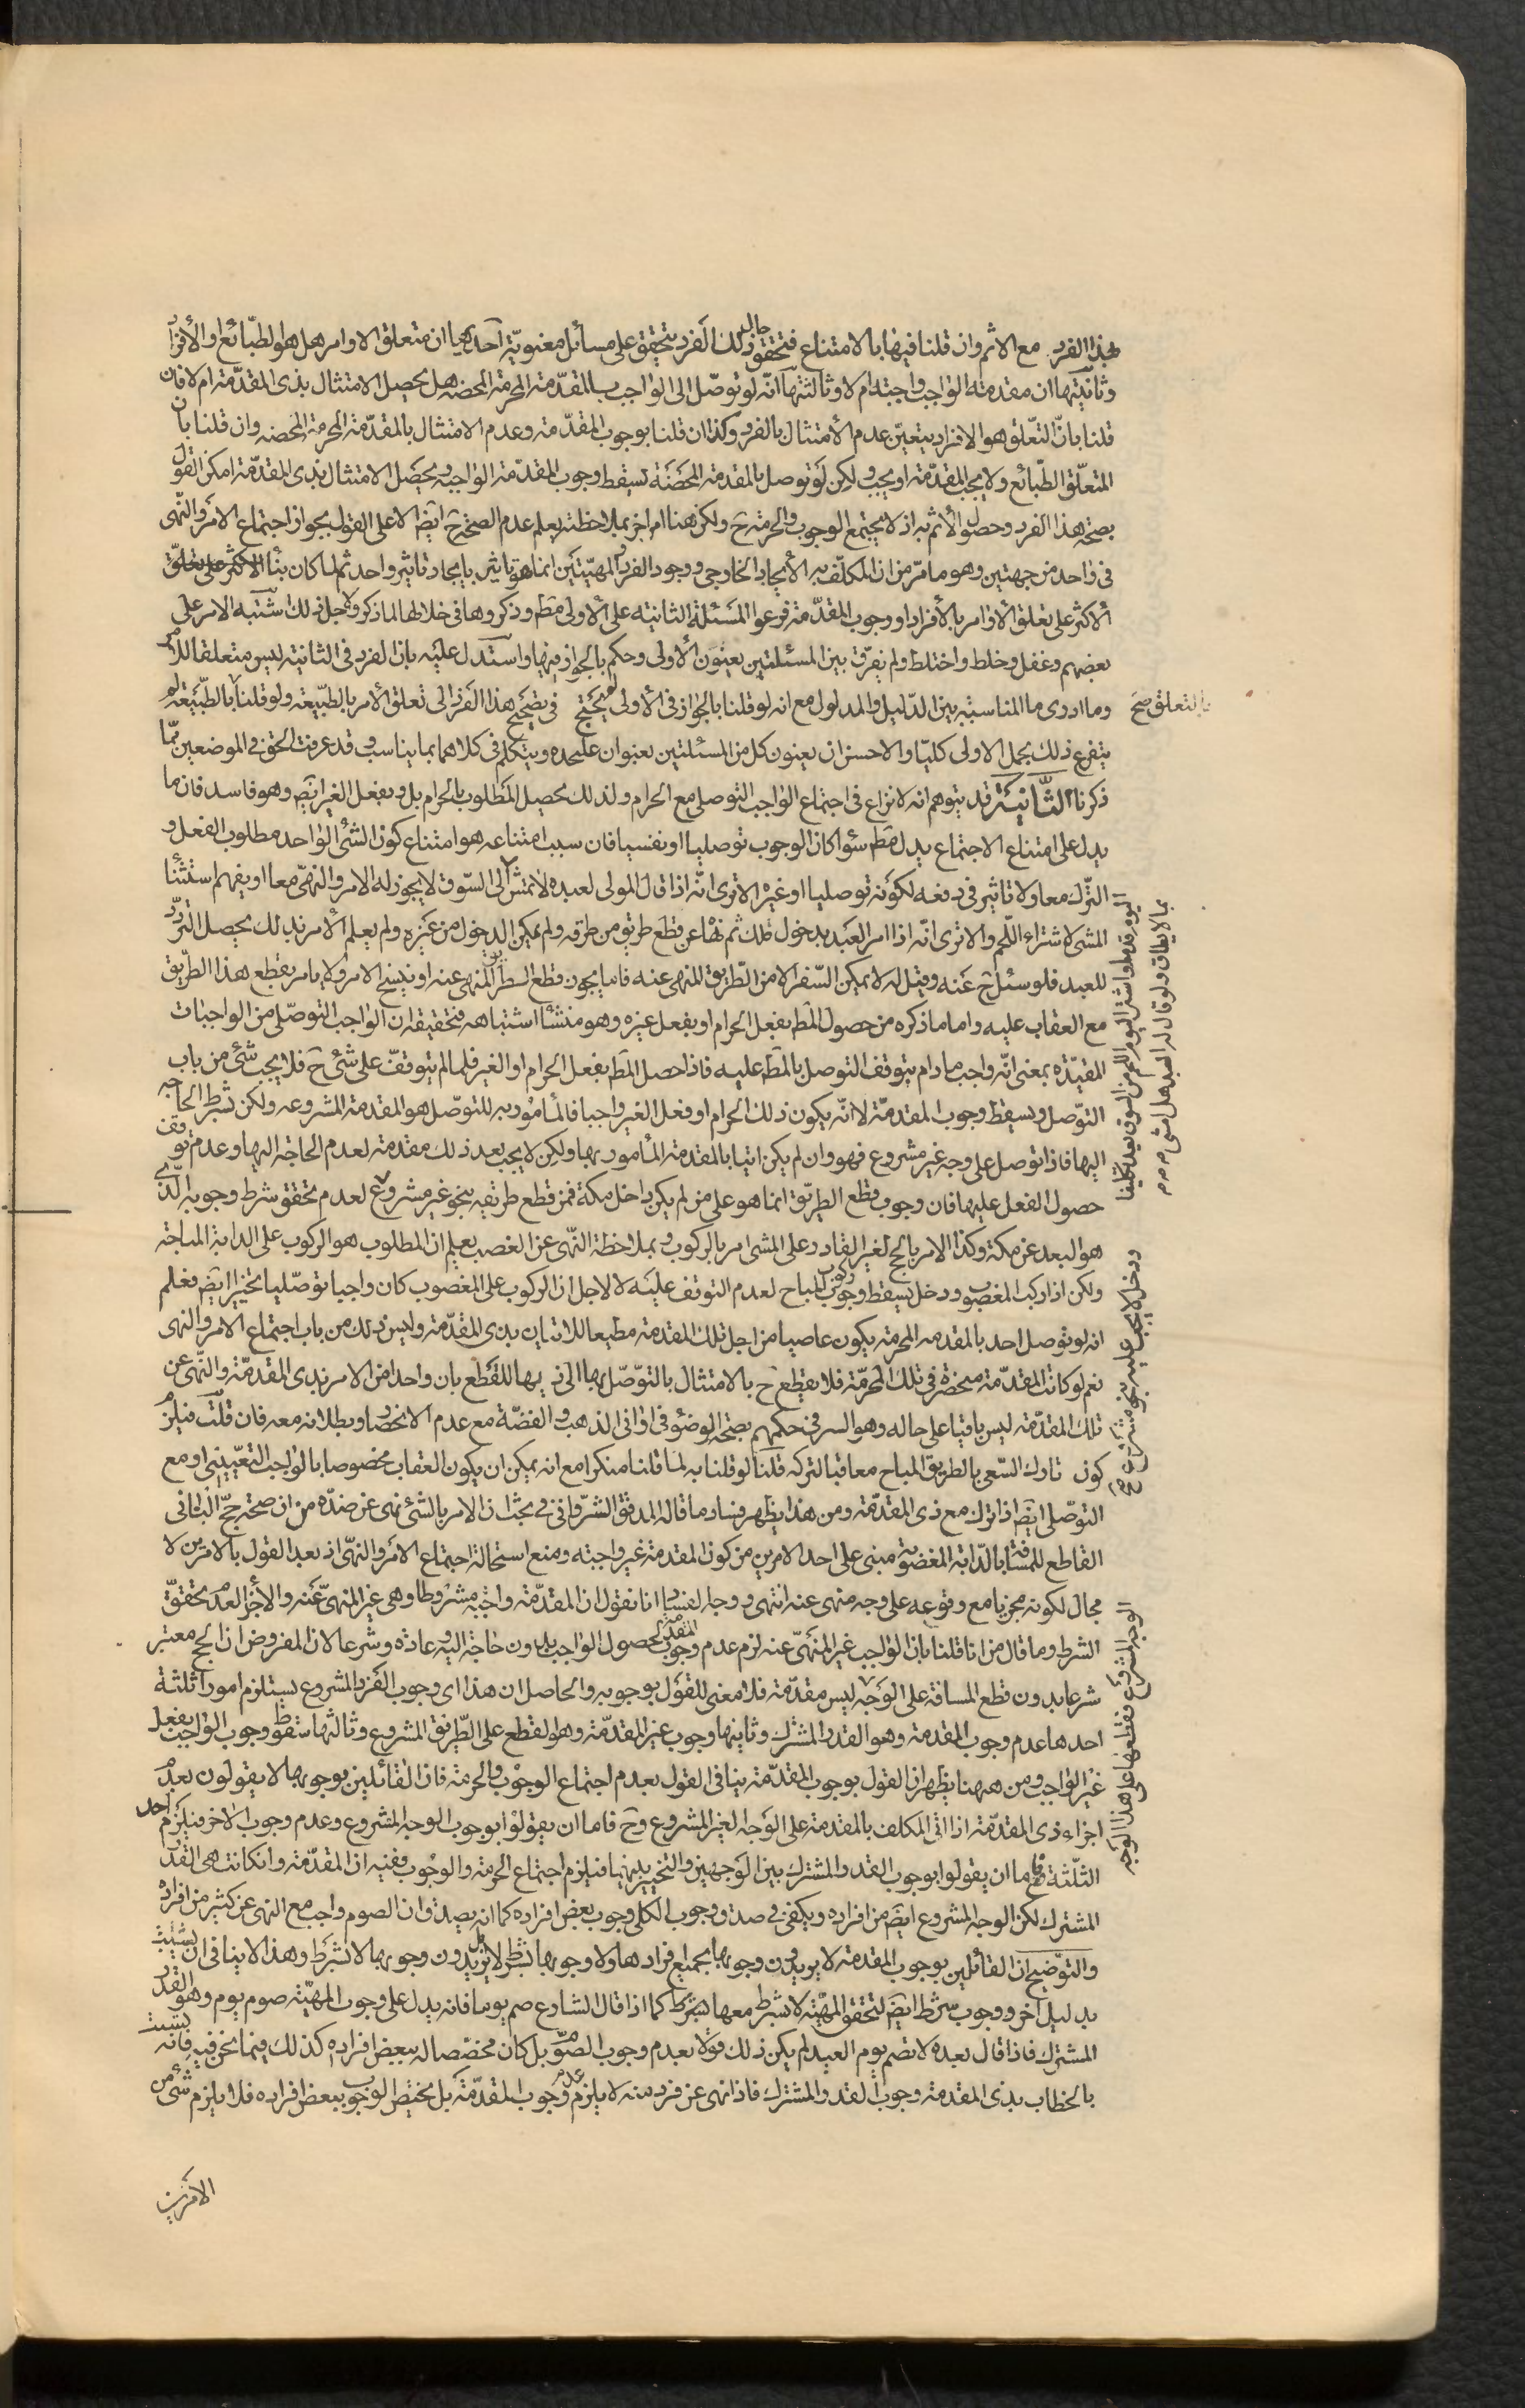 بهذا الفرد مع الاثم وان قلنا فيها بالامتناع فتحقق حال ذلك الفرد يتحقق على مسائل معنويّة احديها ان متعلق الاوامر هل هو الطبّائع او الأفراد
وثانيتها ان مقدمته الواجب واجبة ام لا وثالثتها انّه لو توصّل الى الواجب بالمقدّمة المحرمة المحضه هل يحصل الامتثال بذى المقدّمة ام لا فان
قلنا بانّ التعّلق هو الافراد يتعيّن عدم الأمتثال بالفرد وكذا ان قلنا بوجوب المقدّمة وعدم الامتثال بالمقدّمة المحرمة المحضه وان قلنا بان
المتعلّق الطّبائع ولا يجب المقدّمة او يجب ولكن لو توصل بالمقدمة المحضَة يسقط وجوب المقدّمة الواجبه ويحصَل الامتثال بذى المقدّمة امكن القول
بصحة هذا الفرد وحصول الأثم به اذ لا يجتمع الوجوب والحرمة ح ولكن هنا امر اخر بملاحظته يعلم عدم الصحّة ح ايضا الا على القول بجواز اجتماع الامر والنّهى
فى واحد من جهتين وهو ما مرّ من ان المكلّف به الأيجاد الخارجى ووجود الفرد والمهيّتين انما هو تاثير بايجاد تاثير واحد ثم لما كان بنأ
الأكثر على تعلق الأوامر بالأفراد او وجوب المقدّمة فرعوا المسَئلة الثانيه على الأولى مط وذكروها فى خلالها لما ذكر ولاجل ذلك شتبه الامر على
بعضهم وغفل وخلط واختلط ولم يفرّق بين المسئلتين بعنوَن الأولى وحكم بالجواز فيها واستدل عليَه بان الفرد فى الثانيه ليس متعلقا للامر
وما ادرى ما المناسبة بين الدّليل والمدلول مع انه لو قلنا بالجواز فى الأولى لم يحتج فى تصحيح هذا الفرد الى تعلق الأمر بالطبّيعة ولو قلنا بالطبّيعة لم
بالتعلق صح
يتفرع ذلك بجمل الاولى كليّا والاحسن ان يعنون كل من المسئلتين بعنوان عليحده ويتكلم فى كلاهما بما يناسب وقد عرفت الحق فى الموضعين ممّا
ذكرنا الثَّانِيَة قد يتوهم انه لا نزاع فى اجتماع الواجب التوصلى مع الحرام ولذلك يحصيل المَطلوب بالحرام بل وبفعل الغير ايضَ وهو فاسد فان ما
يدل على امتناع الاجتماع يدل مَط سوا كان الوجوب توصليا او نفسيا فان سبب امتناعه هو امتناع كون الشئ الواحد مطلوب الفعل و
التّرك معا ولا تاثير فى دفعه لكوَنه توصليا او غيره الا ترى انّه اذا قال المولى لعبده لا تمش الى السّوق لا يجوز له الامر والنهىّ معا او يفهم استثنا
المشى لاشتراء اللّحم والا ترى انّه اذا امر العَبد بدخول ملك ثم نهاه عن قطع طريق من طرقه ولم يمكن الدخول من غيره ولم يعلم الأمر بذلك يحصل التردّد
للعبد فلو سئل ح عَنه وقيل له لا يمكن السّفر الا من الطّريق المنهى عنه فاما يجوز قطع الطريق المنهى عنه او ينسخ الامر ولا يامر بقطع هذا الطرّيق
مع العقاب عليه واما ما ذكره من حصول المَط بفعل الحرام او بفعل غيره وهو منشأ اشتباهه فتحقيقه ان الواجب التوصّلى من الواجبات
المقيّده بمعنى انّه واجب ما دام يتوقف التوصل بالمَط عليه فاذا حصل المَط بفعل الحرام او الغير فلما لم يتوقفّ على شئ ح فلا يجب شئ من باب
التوّصل ويسقط وجوب المقدمّة لا انّه يكون ذلك الحرام او فعل الغير واجبا فالمأمور به للتوصّل هو المقدمة المشروعه ولكن بشرط الحاجه
اليها فاذا توصل على وجه غير مشروع فهو وان لم يكن اتيا بالمقدمة المأمور بها ولكن لا يجب بعد ذلك مقدمة لعدم الحاجة اليها وعدم توقف
حصول الفعل عليها فان وجوب قطع الطريّق انما هو على من لم يكن داخل مكة فمن قطع طريقه بنحو غير مشروع لعدم تحقق شرط وجوبه الذى
هو البعد عن مكة وكذا الامر بالحج لغير القادر على المشى امر بالركوب وبملاحظة النّهى عن الغصب يعلم ان المطلوب هو الركوب على الدابة المباحة
ولكن اذا ركب المغصوب ودخل يسقط وجوب ركوب المباح لعدم التوقف عليَه لا لاجل ان الركوب على المغصوب كان واجبا توصّليا تخييرا ايضَ فعلم
انه لو توصل احد بالمقدمه المحرمة يكون عاصيا من اجل تلك المقدمة مطيعا للاتيان بذى المقدّمة وليس ذلك من باب اجتماع الامر والنهى
نعم لو كانت المقدّمة منحصرة فى تلك المحرمّة فلا يقطع ح بالامتثال بالتوّصّل بها الى ذيها للقَطع بان واحدا من الامر بذى المقدمّة والنّهى عن
تلك المقدّمة ليس باقيا على حاله وهو السر فى حكمهم بصحّة الوضوء فى اوانى الذهب والفضّة مع عدم الانحصار وبطلانه معه فان قلت فيلزم
كون تارك السّعى بالطريق المباح معاقبا لتركه قلنا لو قلنا به لما قلنا منكرا مع انه يمكن ان يكون العقاب مخصوصا بالواجب التعيّينى او مع
التوصّلى ايضَ اذا ترك مع ذى المقدّمة ومن هذا يظهر فساد ما قاله المدقق الشرّوانى فى بحث ان الامر بالشئ نهى عن ضدّه من ان صحة حجّ النّائى
القاطع للمسافة بالدّابة المغصوبّة مبنى على احد الامرين من كون المقدمة غير واجبته ومنع استحالة اجتماع الامر والنهىّ اذ بعد القول بالامرين لا
مجال لكونه مجزيا مع وقوعه على وجه منهى عنه انتهى ووجه الفساد انا نقول ان المقدّمة واجبة مشروطا وهى غير المنهىّ عَنه والأجزاء لعدم تحققّ
الشرط وما قال من انا قلنا بان الواجب غير المنهَىّ عنه لزم عدم وجوب المقدمة لحصول الواجب بدون حاجة اليه عادة وشرعا لان المفروض ان الحج معتبر
شرعا بدون قطع المسافة على الوَجه ليس مقدّمة فلا معنى للقوَل بوجوبه والحاصل ان هذا اى وجوب الفرد المشروع يستلزم امورا ثلثة
احدها عدم وجوب المقدمة وهو القدر المشترك وثانيها وجوب غير المقدّمة وهو القطع على الطّريق المشروع وثالثها سقوط وجوب الواجب بفعل
غير الواجب ومن ههنا يظهر ان القول بوجوب المقدّمة ينافى القول بعدم اجتماع الوجوب والحرمة فان القائلين بوجوبها لا يقولون بعدم
اجزاء ذى المقدّمة اذا اتى المكلف بالمقدمة على الوَجه الغير المشروع وح فاما ان يقولوا بوجوب الوجه المشروع وعدم وجوب الاخر فيلزم احد
الثلّثة واما ان يقولوا بوجوب القدر المشترك بين الوَجهين والتخيير بينهما فيلزم اجتماع الحرمة والوجوب ففيه ان المقدّمة وان كانت هى القدر
المشترك لكن الوجه المشروع ايضَ من افراده ويكفى فى صدق وجوب الكلى وجوب بعض افراده كما انه يصدق ان الصوم واجب مع النهى عن كثير من افراده
والتوّضيح ان القائلين بوجوب المقدمة لا يريدون وجوبها بجميع افرادها ولا وجوبها بشرط لا بل يريدون وجوبها لا بشرط وهذا لا ينافى ان يثبت
بدليل آخر وجوب شرط ايضَ لتحقق المهيّة لا بشرط معها بشرط كما اذا قال الشارع صم يوما فانه يدل على وجوب المهيّة صوم يوم وهو القدر
المشترك فاذا قال بعده لا تصم يوم العيد لم يكن ذلك قولا بعدم وجوب الصوّم بل كان مخصّصا له ببعض افراده كذلك فيما نحن فيه فانّه يثبت
بالخطاب بذى المقدمة وجوب القدر المشترك فاذا نهى عن فرد منه لا يلزم عدم وجوب المقدّمة بل يختص الوجوب ببعض افراده فلا يلزم شئ من
الامرين